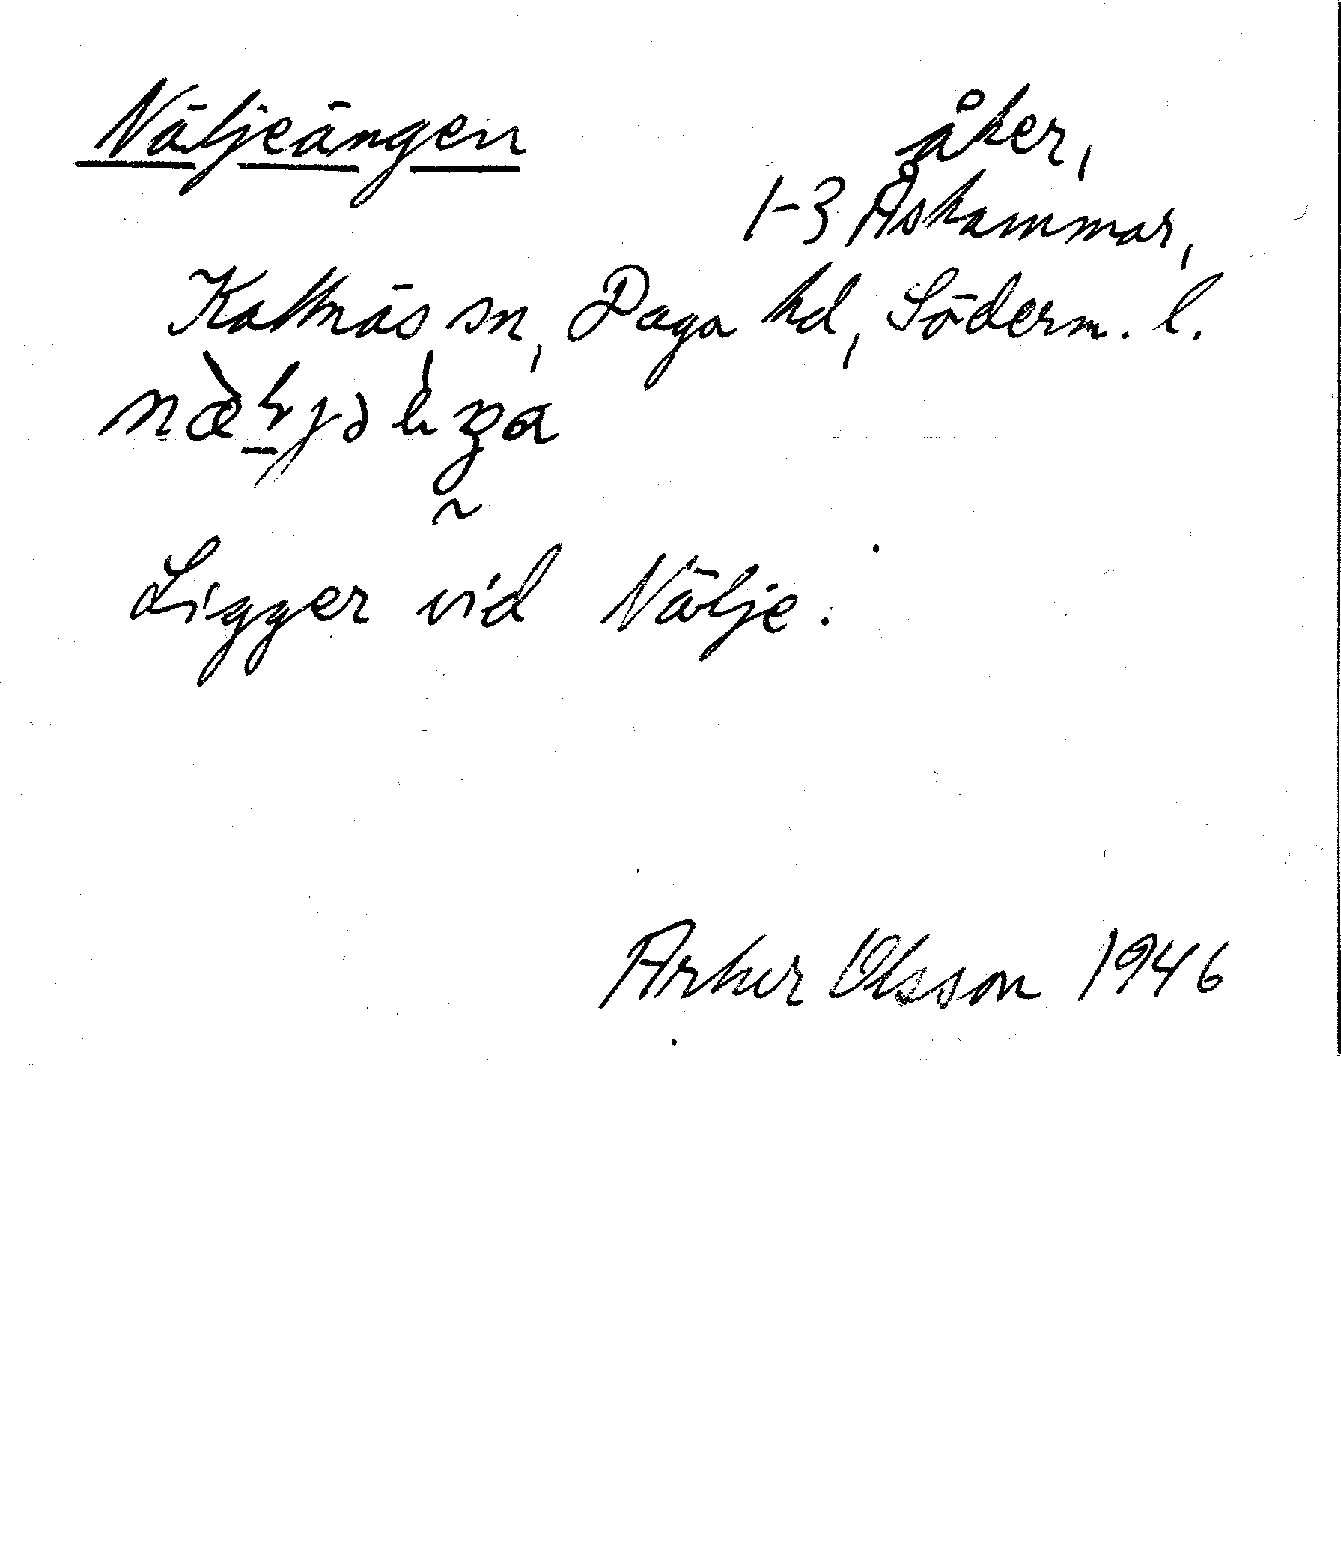 Näljeängen
åker,
1-3 Åskammar,
Kattnäs sn, Daga hd, Söderm. l.
Ligger vid Nälje.
Arthur Olsson 1946